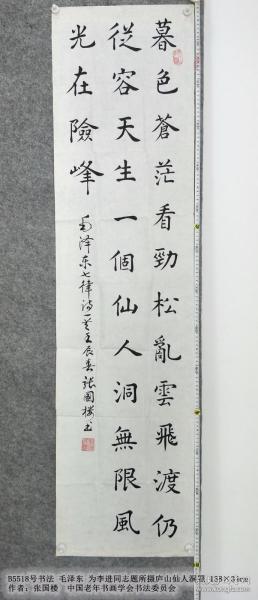 暮色蒼茫看勁松亂雲飛渡仍
從容天生一個仙人洞無限風
光在險峰
毛泽东七律诗一首壬辰春 張國樓书
B5518号书法 毛泽东 为李进同志题所摄庐山仙人洞照 138×34cm
作者:张国楼 中国老年书画学会书法委员会